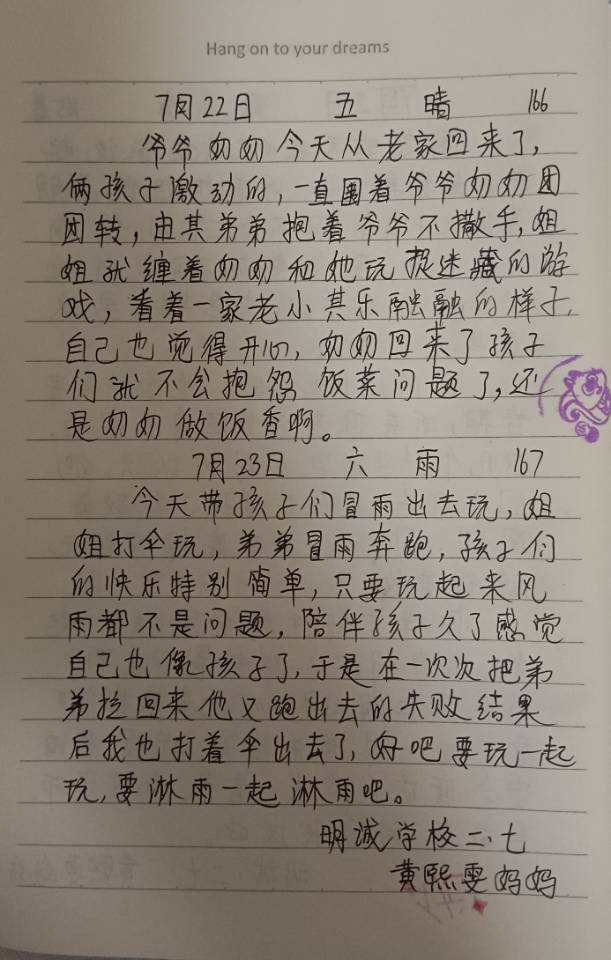 Hang on to your dreams
7月22日 五 晴 166
爷爷奶奶今天从老家回来了,
俩孩子激动的,一直围着爷爷奶奶团
团转,由其弟弟抱着爷爷不撒手,姐
姐就缠着奶奶和她玩捉迷藏的游
戏,看着一家老小其乐融融的样子,
自己也觉得开心,奶奶回来了孩子
们就不会抱怨饭菜问题了,还
是奶奶做饭香啊。
7月23日 六 雨 167
今天带孩子们冒雨出去玩,姐
姐打伞玩,弟弟冒雨奔跑,孩子们
的快乐特别简单,只要玩起来风
雨都不是问题,陪伴孩子久了感觉
自己也像孩子了,于是在一次次把弟
弟拉回来他又跑出去的失败结果
后我也打着伞出去了,好吧要玩一起
玩,要淋雨一起淋雨吧。
明诚学校二、七
黄熙雯妈妈